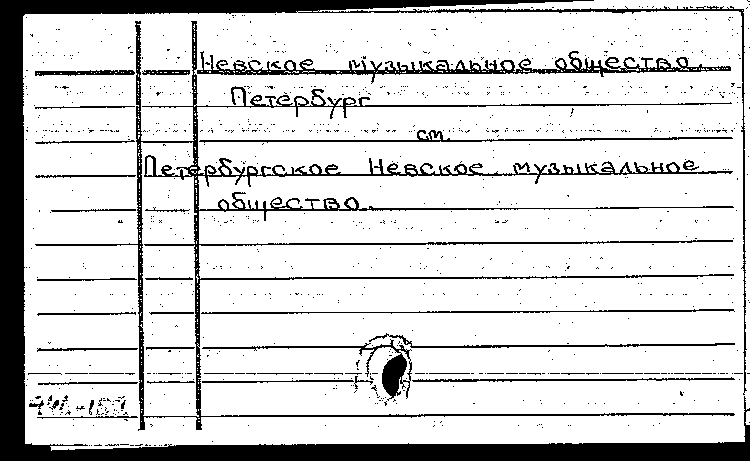 Невское музыкальное общество.
Петербург
см.
Петербургское Невское музыкальное
общество.